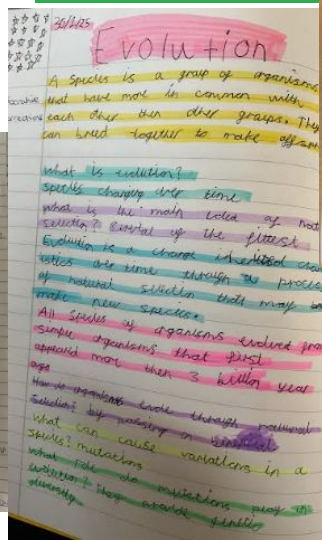 30/1/25
Evolution
A species is a group of organisms
that have more in common with
each other then other groups. They
can breed together to make
what is evolution?
species changing over time
what is the main idea of
selection? survival of the fittest
Evolution is a change inherited
over time through a process
of natural selection that may
make new species.
All species of organisms evolved from
simple organisms that first
appeared more then 3 billion year
ago
How do organisms evolve through natural
selection? by passing on
what can cause variations in a
species? mutations
what role do mutations play in
evolution? They provide genetic
diversity